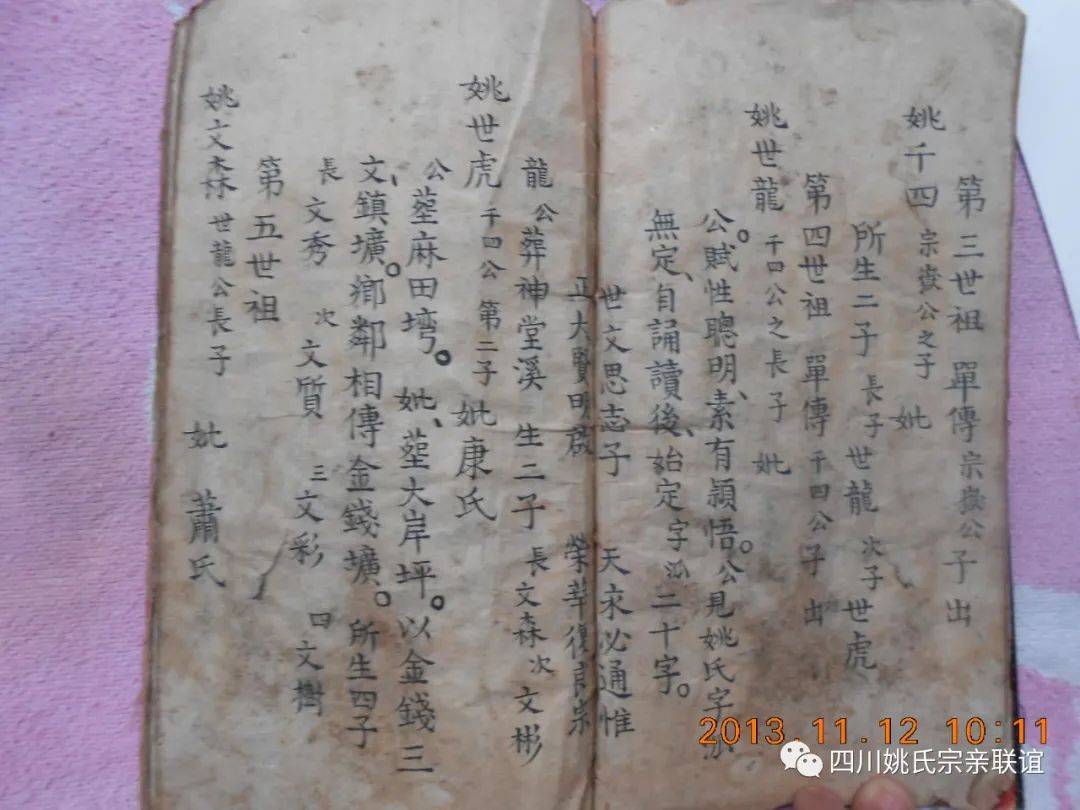 第三世祖 單傳 宗嶽公子出
姚千四 宗嶽公之子 妣
所生二子 長子世龍 次子世虎
第四世祖 單傳 千四公子出
姚世龍 千四公之長子 妣
公。賦性聰明、素有穎悟。公見姚氏字
無定、自誦讀後、始定字派二十字。
世文思志子 天來必通惟
正大賢明啟 榮華復良宗
龍公葬神堂溪 生二子 長文森 次文彬
姚世虎 千四公第二子 妣康氏
公葬麻田塆。妣、葬大岸坪。以金錢三
文、鎮壙。鄉鄰相傳金錢壙。所生四子
長文秀 次文質 三文彩 四文樹
第五世祖
姚文森 世龍公長子 妣 蕭氏
2013.11.12 10:11
四川姚氏宗亲联谊